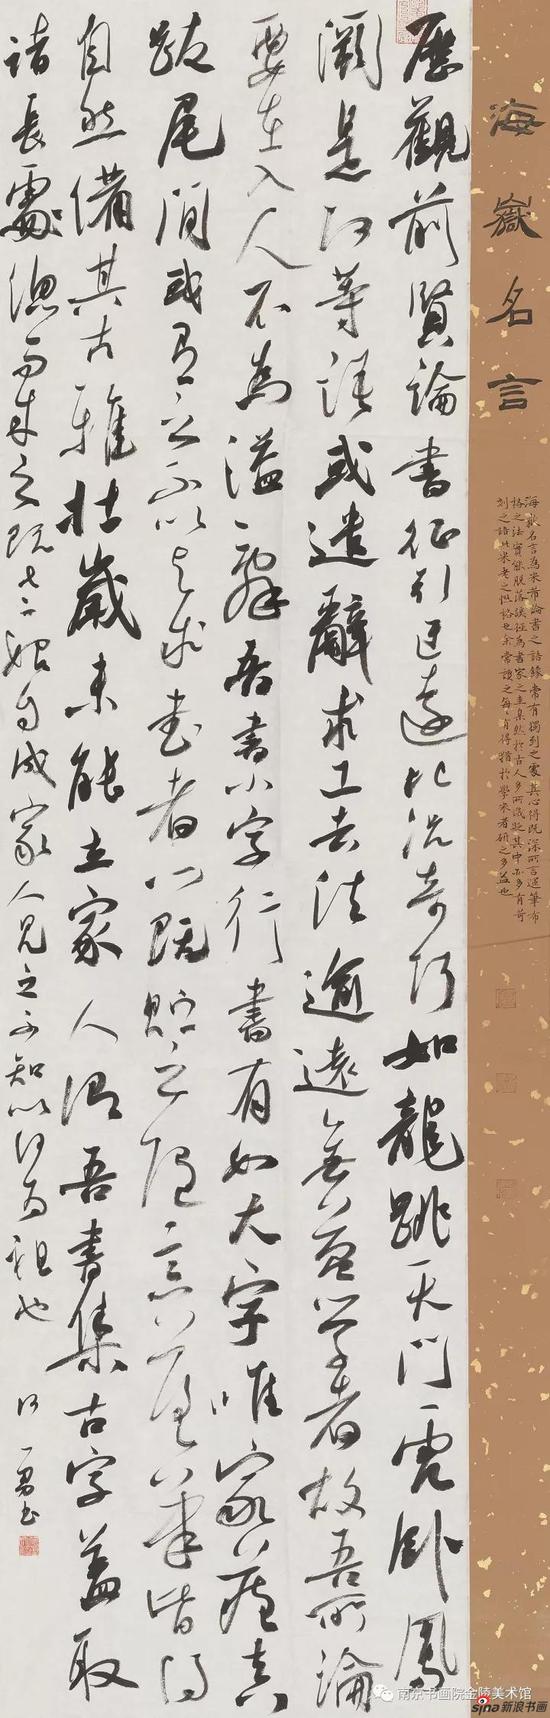 海嶽名言
海嶽名言為米芾論書之語錄常有獨到之處其心得既深所言運筆布
格之法實能脫落蹊徑為書家之圭臬然於古人多所譏貶其中亦多有苛
刻之語此米老之性格也余常讀之每有得猶於學米者研之多益也
歷觀前賢論書征引迂遠比況奇巧如龍跳天門虎卧鳳
闕是何等語或遣辭求工去法逾遠無益學者故吾所論
要在入人不為溢辭吾書小字行書有如大字唯家藏真
跋尾間或有之不以與求書者心既貯之隨意落筆皆得
自然備其古雅壯歲未能立家人謂吾書集古字蓋取
諸長處總而成之既老始自成家人見之不知以何為祖也
南京书画院金陵美术馆
sina新浪书画